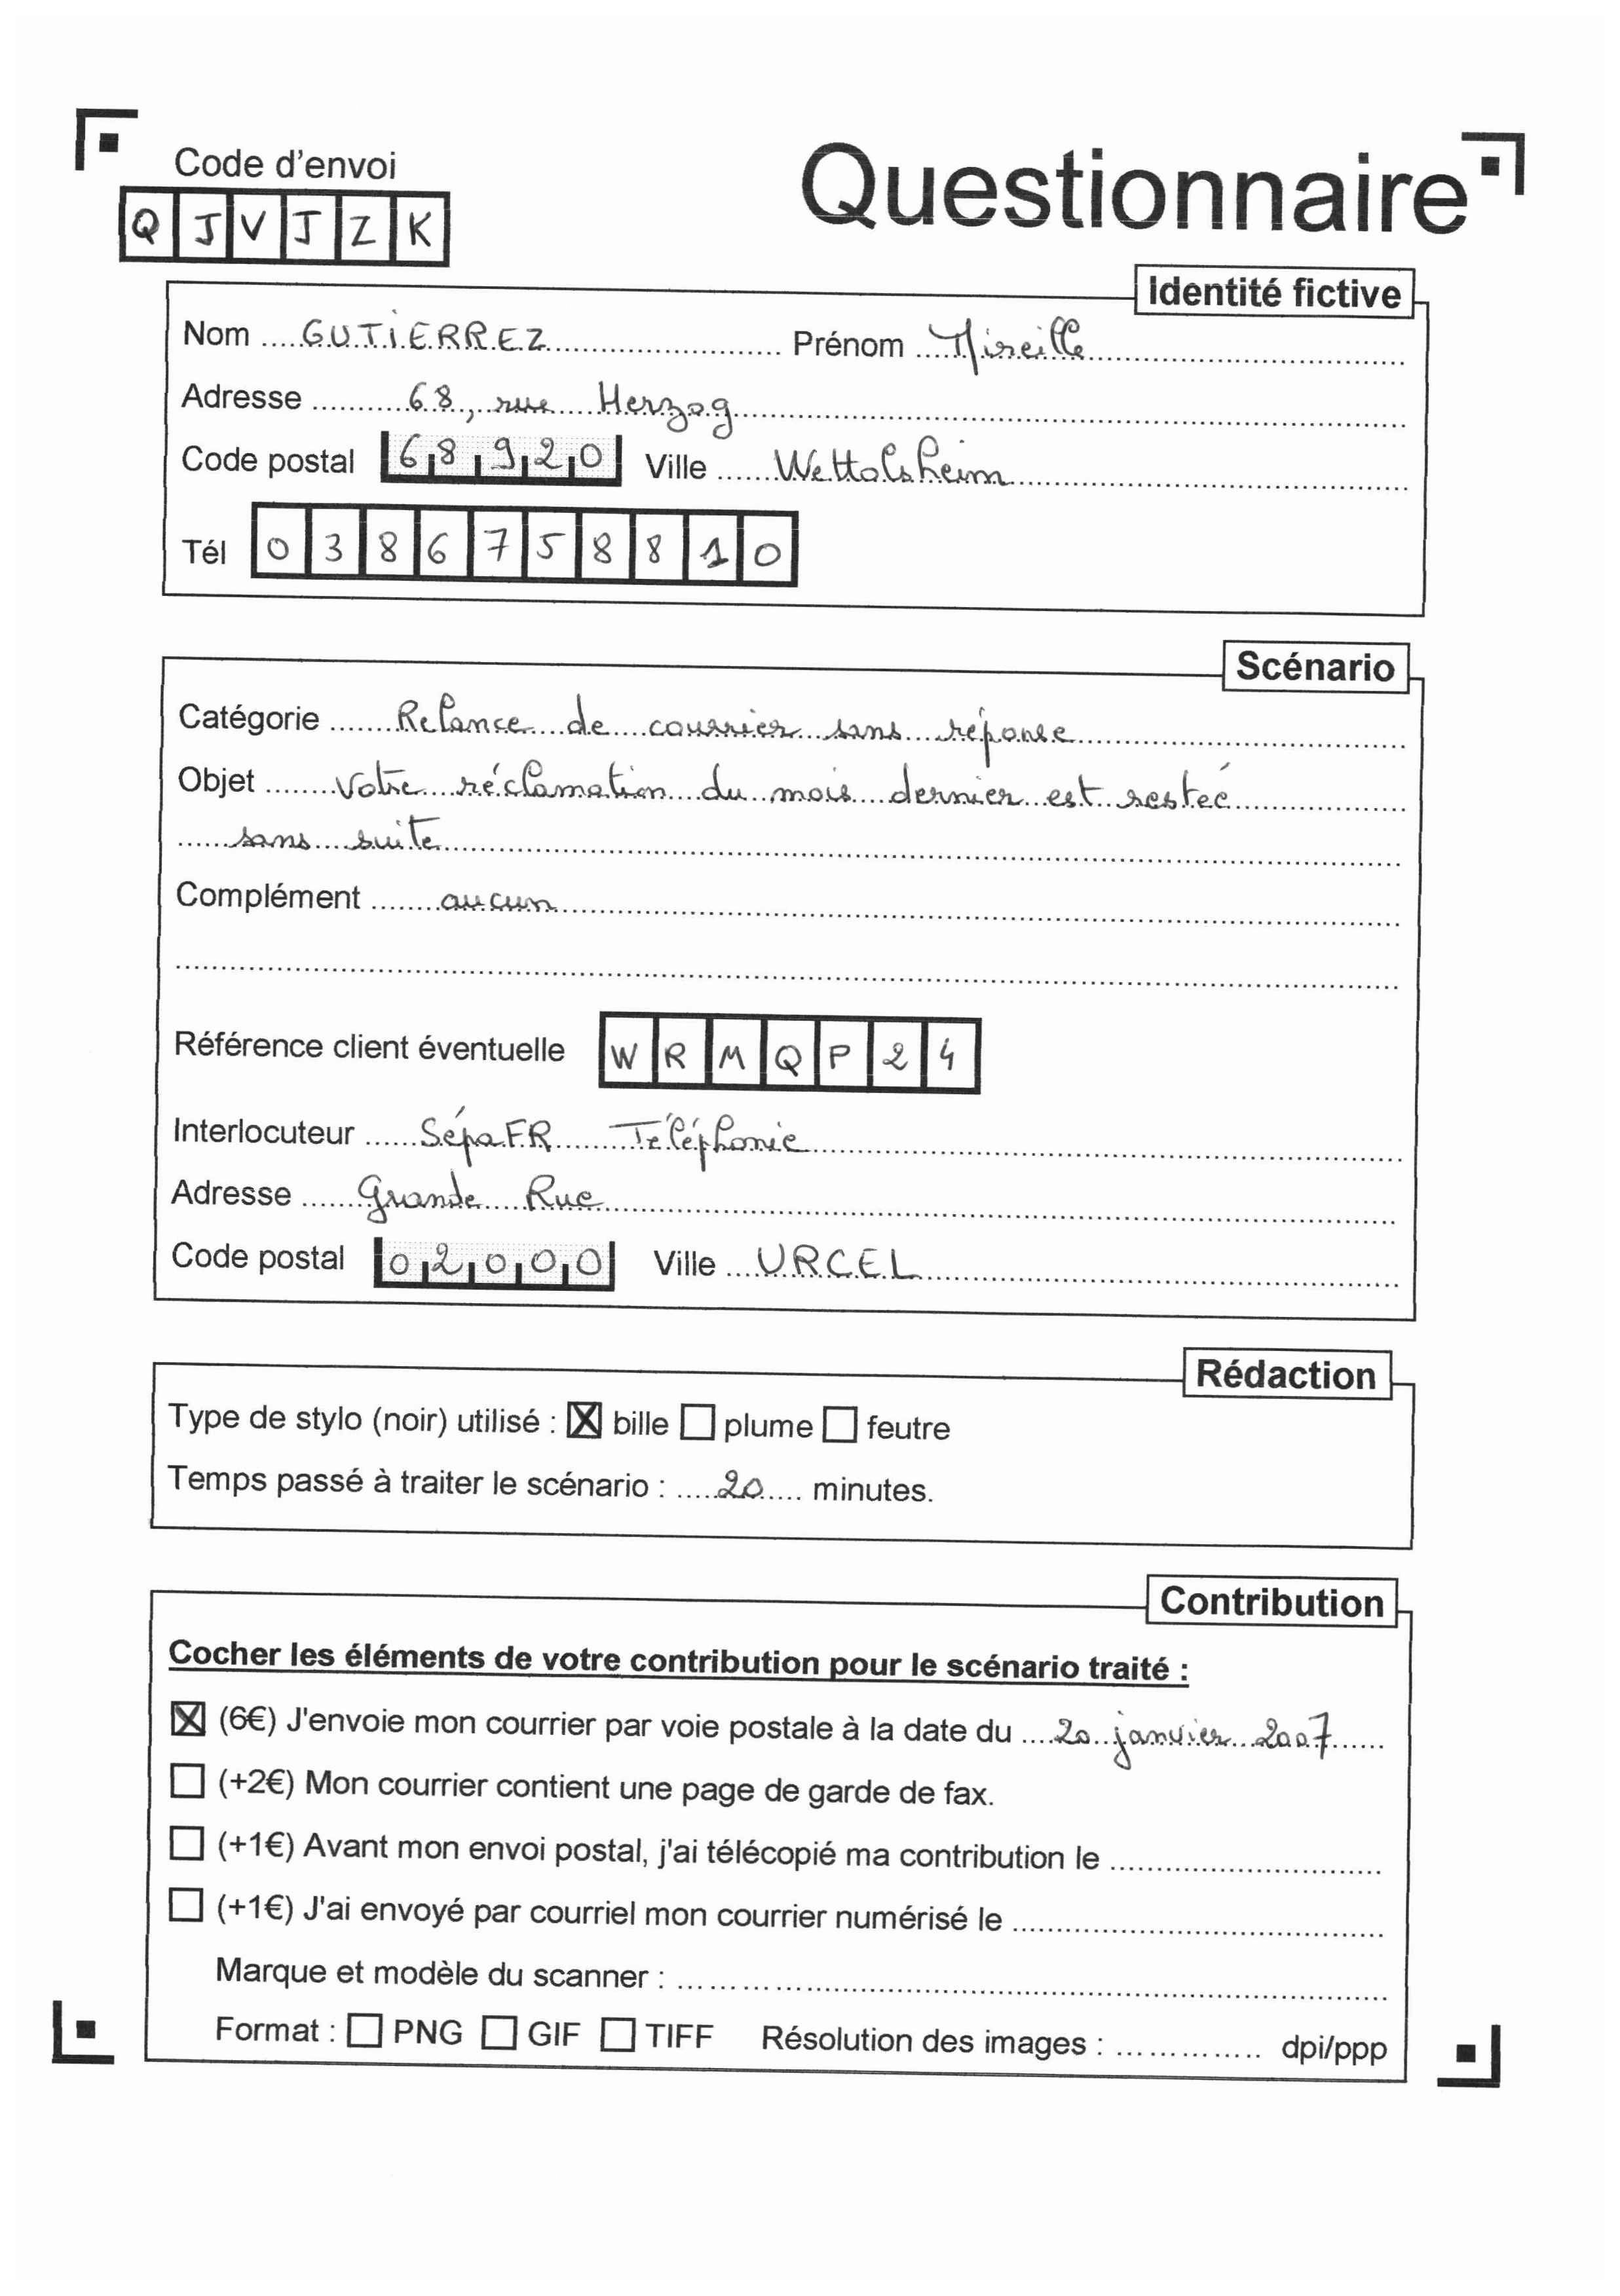 Code d'envoi
Questionnaire
QJVJZK
Identité fictive
Nom GUTIERREZ Prénom Mireille
Adresse 68, rue Herzog
Code postal 68920 Ville Wettolsheim
Tél 0386758810
Scénario
Catégorie Relance de courrier sans réponse
Objet Votre réclamation du mois dernier est restée
sans suite
Complément aucun
Référence client éventuelle WRMQP24
Interlocuteur SépaFR Téléphonie
Adresse Grande Rue
Code postal 02000 Ville URCEL
Rédaction
Type de stylo (noir) utilisé : ☒ bille ☐ plume ☐ feutre
Temps passé à traiter le scénario : 20 minutes.
Contribution
Cocher les éléments de votre contribution pour le scénario traité :
☒ (6€) J'envoie mon courrier par voie postale à la date du 20 janvier 2007
☐ (+2€) Mon courrier contient une page de garde de fax.
☐ (+1€) Avant mon envoi postal, j'ai télécopié ma contribution le
☐ (+1€) J'ai envoyé par courriel mon courrier numérisé le
Marque et modèle du scanner :
Format : ☐ PNG ☐ GIF ☐ TIFF Résolution des images : dpi/ppp